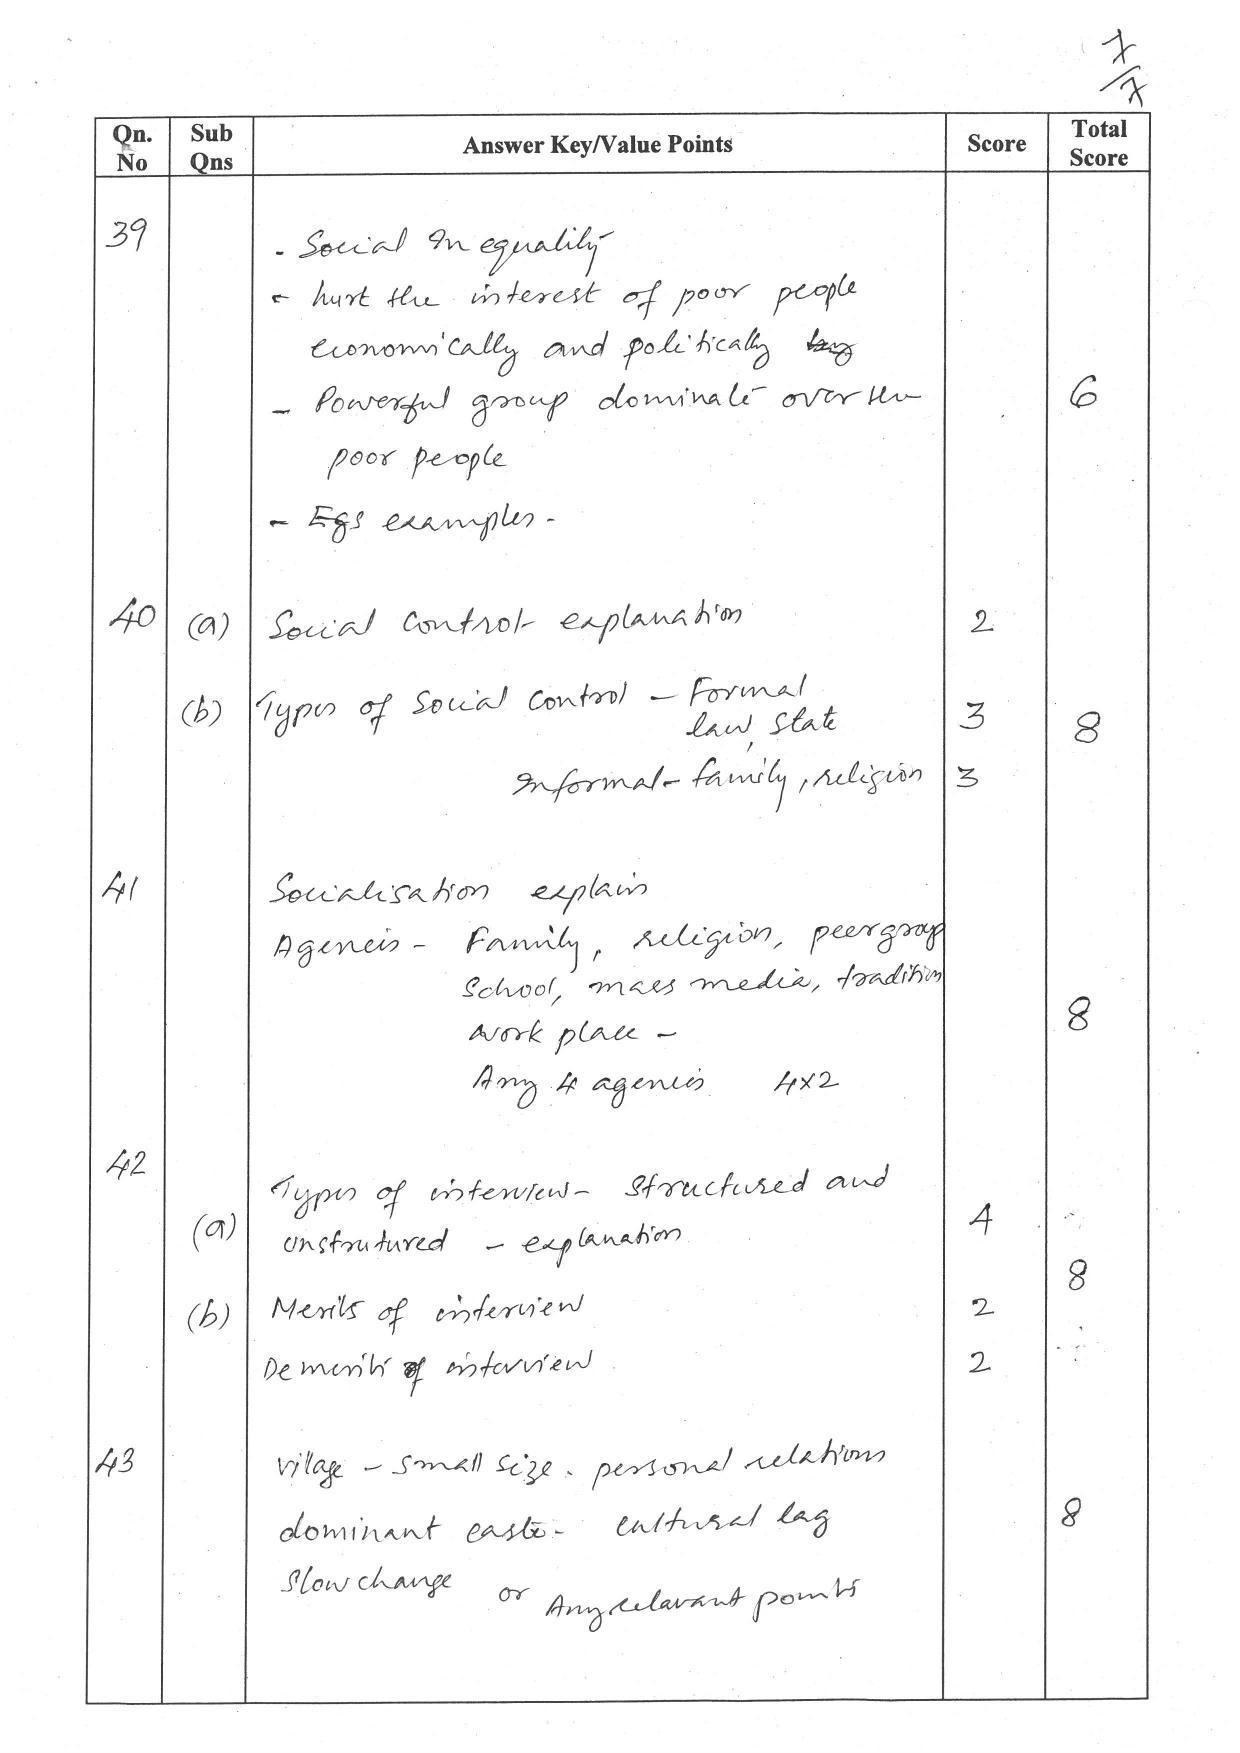 7/7
Qn. No Sub Qns Answer Key/Value Points Score Total Score
39
- Social Inequality
- hurt the interest of poor people
economically and politically
- Powerful group dominate over the 6
poor people
- Egs examples -
40 (a) Social Control- explanation 2
(b) Types of Social Control - Formal
law, State 3 8
Informal - family, religion 3
41 Socialisation explain
Agencis - Family, religion, peergroup
School, mass media, tradition
work place - 8
Any 4 agencis 4x2
42
Types of interview - Structured and
(a) unstrutured - explanation 4
8
(b) Merits of interview 2
Demerits of interview 2
43 Village - Small size. personal relations
dominant caste - cultural lag 8
Slow change or Any relavant points